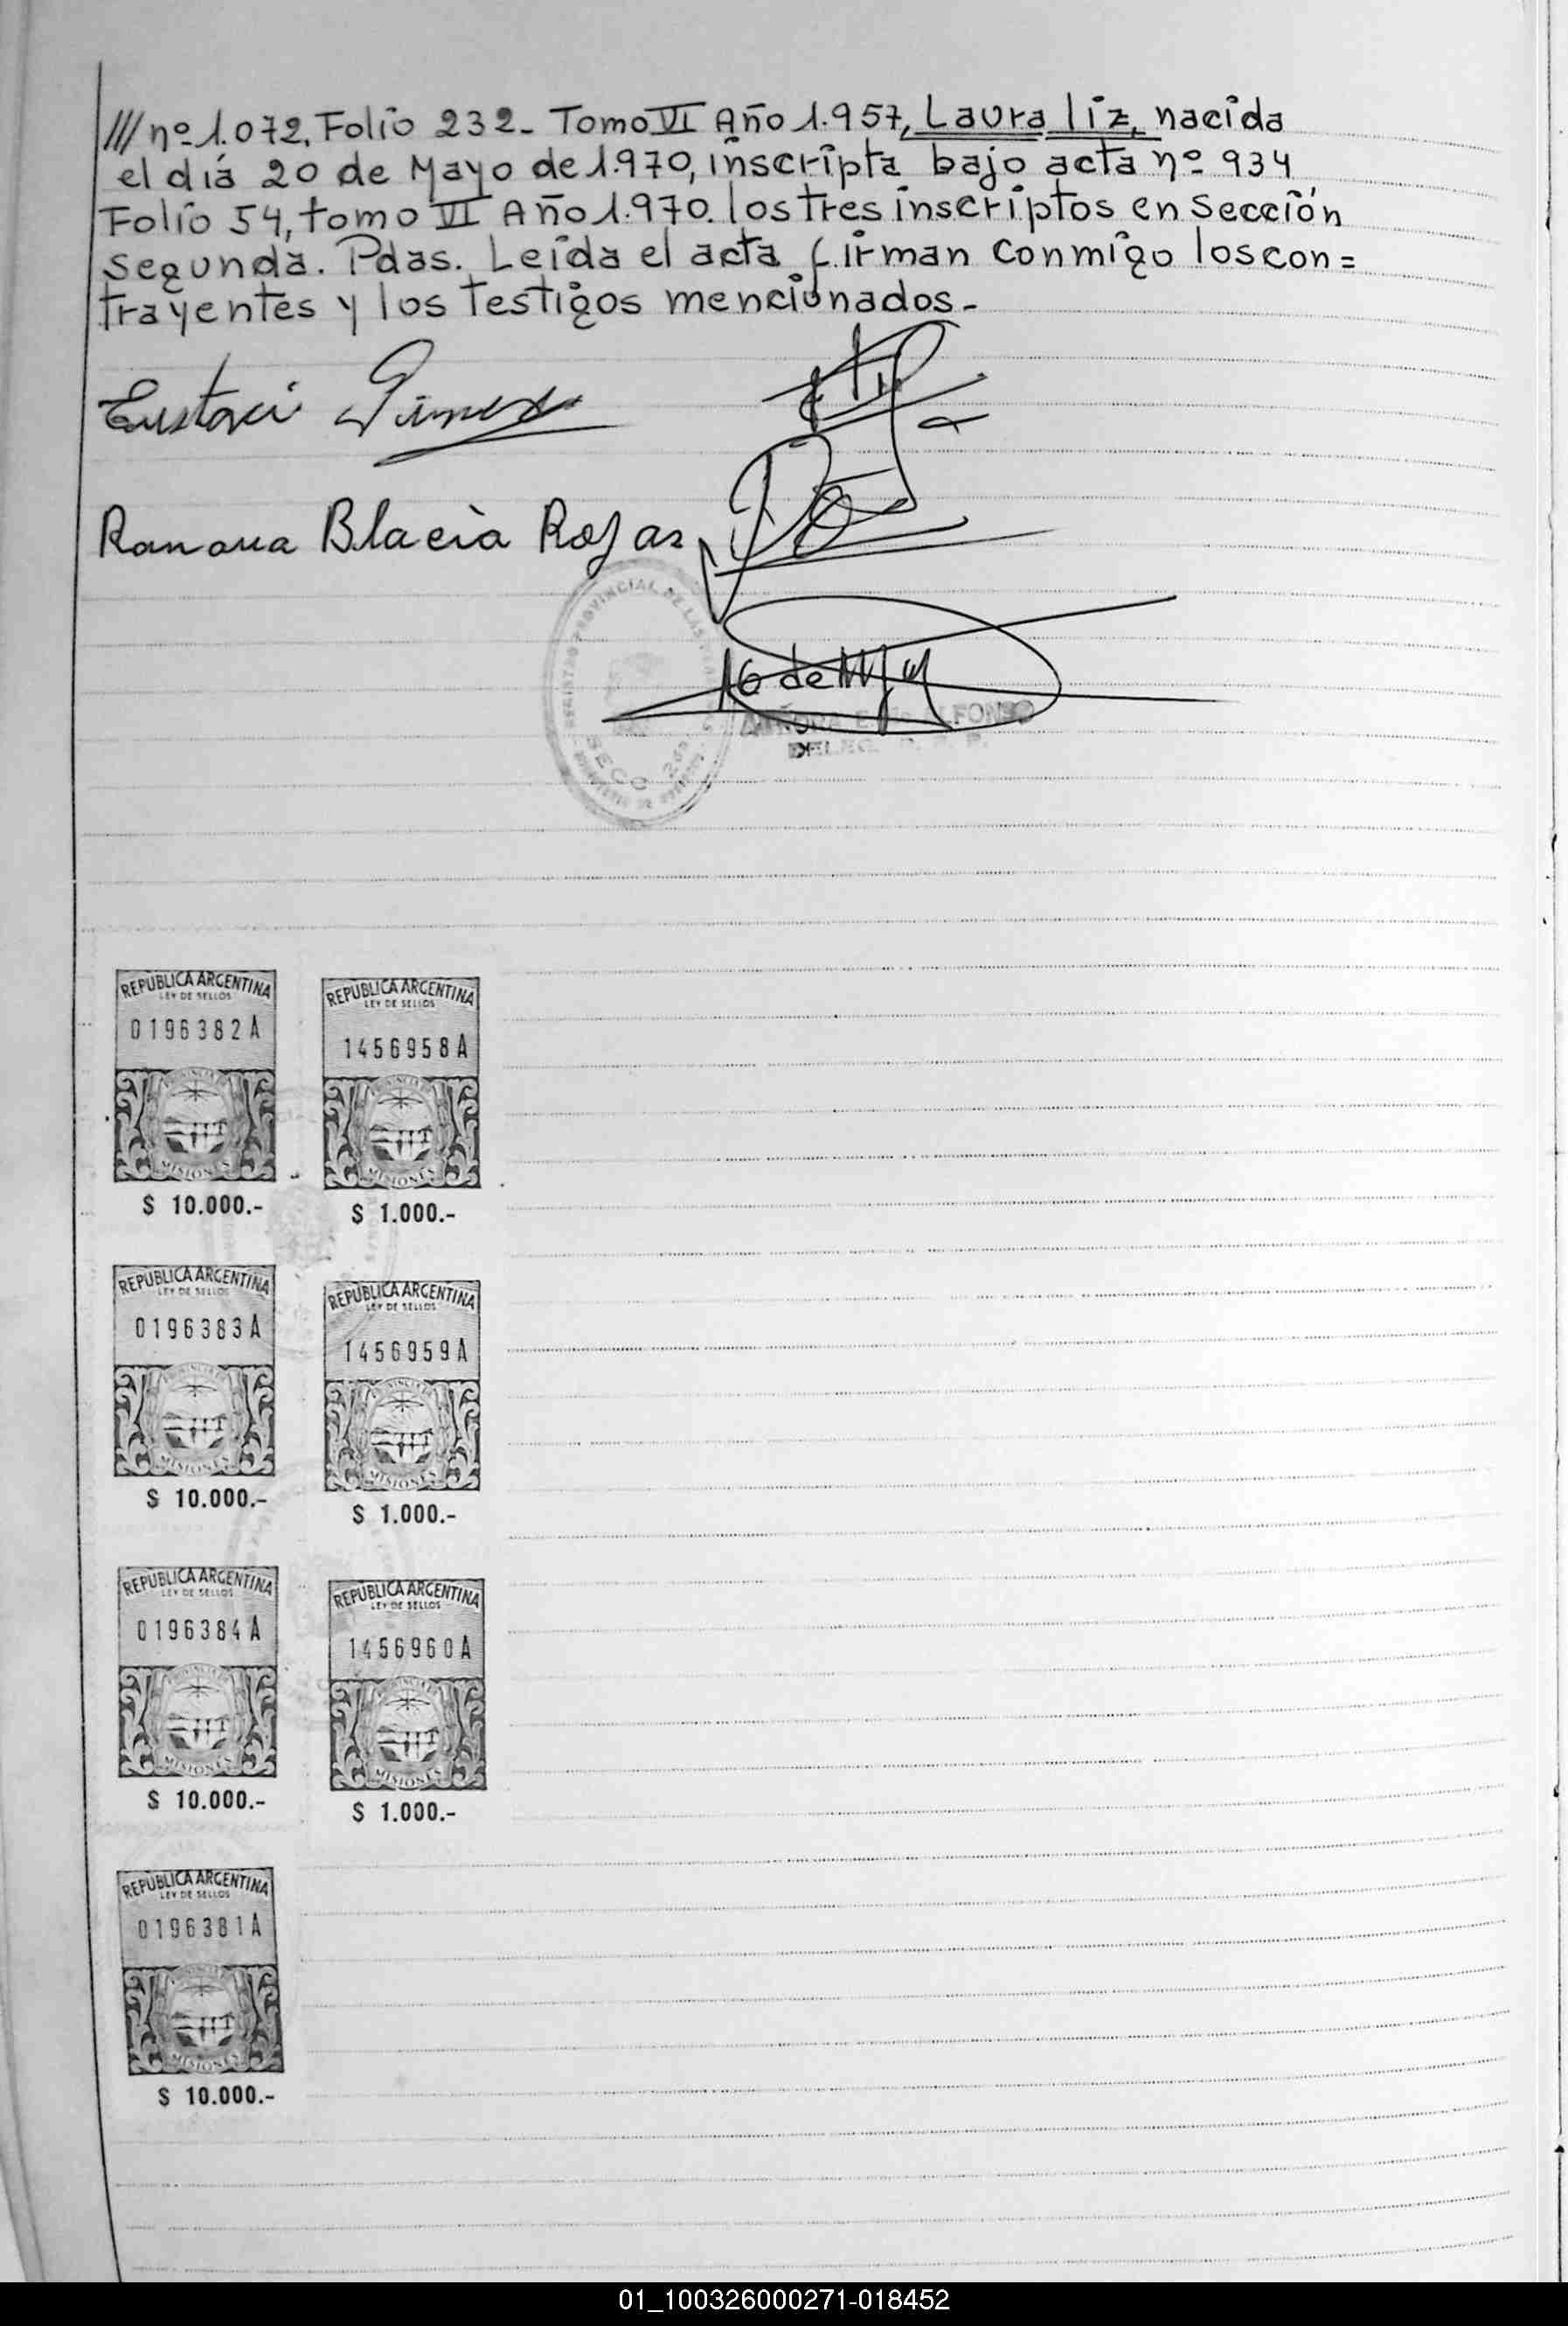 /// nº 1.072, Folio 232- Tomo VI Año 1.957, Laura liz, nacida
el día 20 de Mayo de 1.970, inscripta bajo acta nº 934
Folio 54, tomo VI Año 1.970. los tres inscriptos en Sección
Segunda. Pdas. Leída el acta firman conmigo los con=
trayentes y los testigos mencionados-
Ramona Blacia Rojas
REPUBLICA ARGENTINA
LEY DE SELLOS
0196382A
MISIONES
$ 10.000.-
REPUBLICA ARGENTINA
LEY DE SELLOS
1456958A
MISIONES
$ 1.000.-
REPUBLICA ARGENTINA
LEY DE SELLOS
0196383A
MISIONES
$ 10.000.-
REPUBLICA ARGENTINA
LEY DE SELLOS
1456959A
MISIONES
$ 1.000.-
REPUBLICA ARGENTINA
LEY DE SELLOS
0196384A
MISIONES
$ 10.000.-
REPUBLICA ARGENTINA
LEY DE SELLOS
1456960A
MISIONES
$ 1.000.-
REPUBLICA ARGENTINA
LEY DE SELLOS
0196381A
MISIONES
$ 10.000.-
01_100326000271-018452